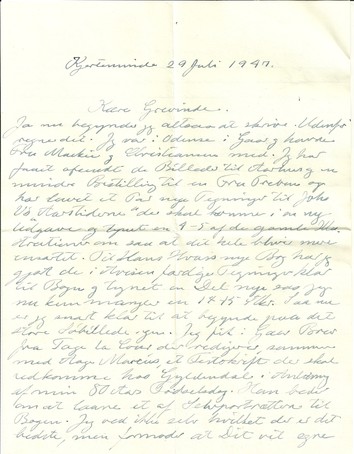 Kjerteminde 29 Juli 1947.
Kære Grevinde.
Ja nu begynder jeg altsaa at skrive. Udenfor
regner det. Jeg var i Odense i Gaar og havde
Fru Mackie og Christiansen med. Jeg har
faaet afsendt de Billeder til Aarhus og en
mindre Bestilling til en Fru Preben og
har lavet et Par nye Tegninger til Johs
V's Aarstiderne" der skal komme i en ny
Udgave og 4-5 af de gamle Illu
strationer om saa at det hele bliver mere
ensartet. Til Hans Hvass nye Bog har jeg
gjort de i Stregen færdige Tegninger klar
til Bogen og et en Del nye saa jeg
nu kun mangler en 14-15 Stkr. Saa nu
er jeg snart klar til at begynde paa det
store Billede igen. Jeg fik i Gaar Brev
fra Tage la Cour der redigerer, sammen
med Stage Marcus, et Festskrift der skal
udkomme hos Gyldendal i Anledning
af min 80 Aars Fødselsdag. Han beder
om at laane et af Selvportrætterne til
Bogen. Jeg ved ikke selv hvilket der er det
bedste, men formoder at Dit vil egne